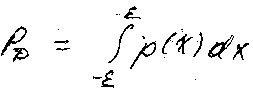 P_D = ∫_{-ε}^{-ε} p(x) dx